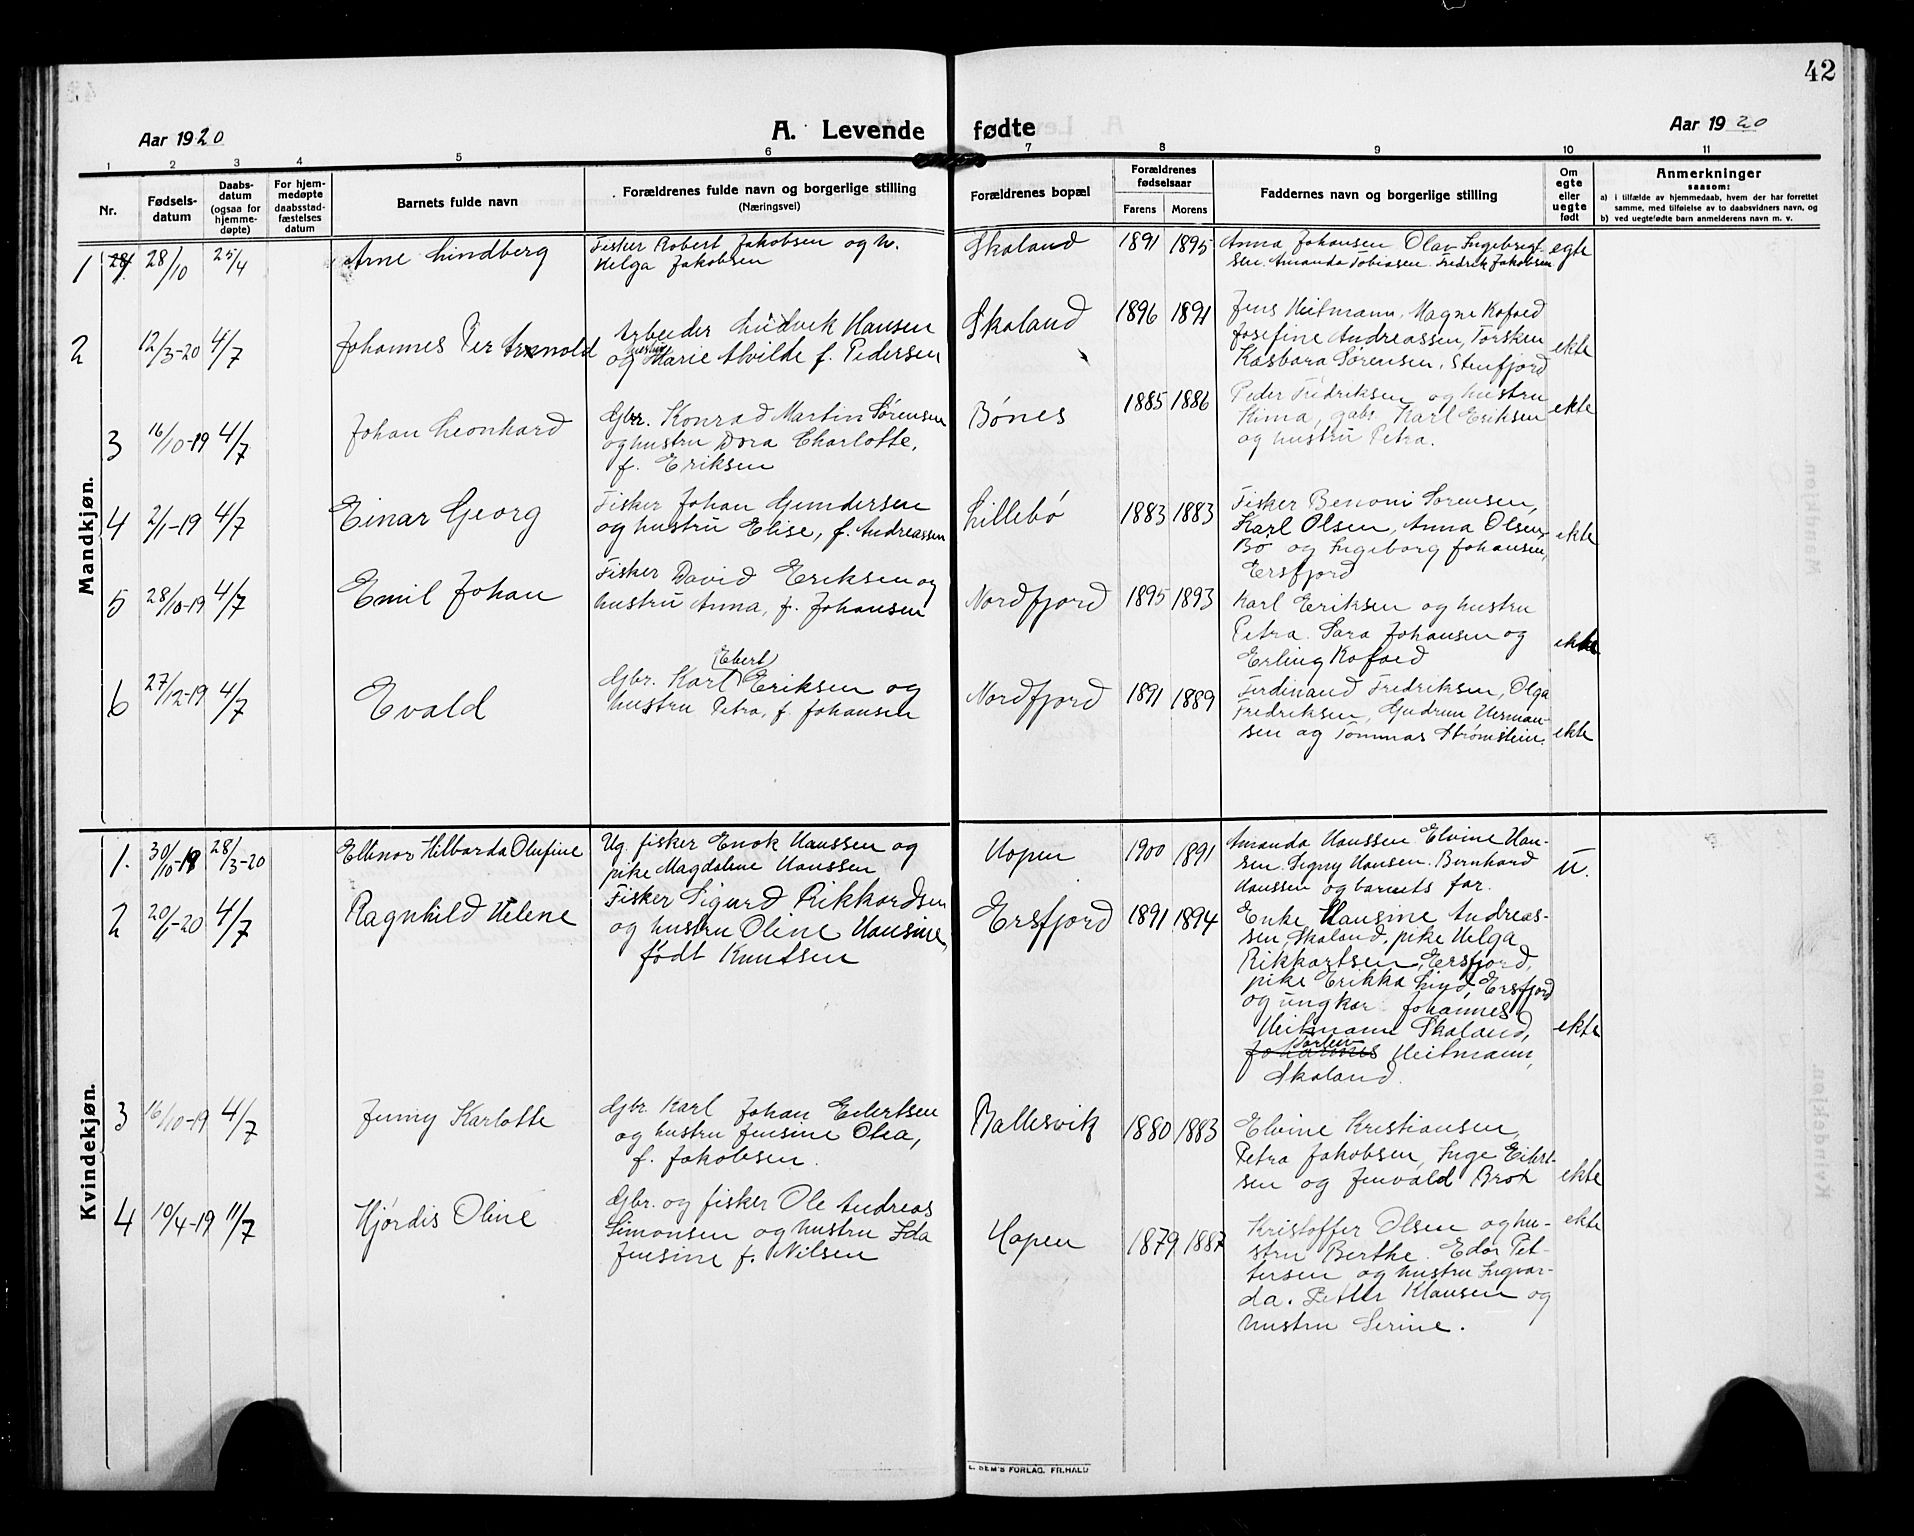 42
Aar 1920
A. Levende fødte
Aar 1920
1 2 3 4 5 6 7 8 9 10 11
Nr.
Fødsels-
datum
Daabs-
datum
(ogsaa for
hjemme-
døpte)
For hjem-
medøpte
daabsstad-
fæstelses
datum
Barnets fulde navn
Forældrenes fulde navn og borgerlige stilling
(Næringsvei)
Forældrenes bopæl
Forældrenes
fødselsaar
Farens Morens
Faddernes navn og borgerlige stilling
Om
egte
eller
uegte
født
Anmerkninger
saasom:
a) i tilfælde av hjemmedaab, hvem der har forrettet
samme, med tilføielse av to daabsvidners navn, og
b) ved uegtefødte barn anmelderens navn m. v.
Mandkjøn.
1 28/10 25/4 Arne Lindberg
Fisker Robert Jakobsen og h.
Helga Jakobsen
Skaland 1891 1895
Anna Johansen Olav Ingebrigt-
sen. Amanda Tobiasen. Fredrik Jakobsen
egte
2 12/3-20 4/7 Johannes Per Arnold
Arbeider Ludvik Hansen
og hustru Marie Alvilde f. Pedersen
Skaland 1896 1891
Jens Heitmann, Magne Kofoed
Josefine Andreassen, Torsken
Kasbara Sørensen, Stenfjord
ekte
3 16/10-19 4/7 Johan Leonhard
Gbr. Konrad Martin Sørensen
og hustru Dora Charlotte,
f. Eriksen
Bønes 1885 1886
Peder Fredriksen og hustru
Kima, gabr. Karl Eriksen
og hustru Petra.
ekte
4 2/1-19 4/7 Einar Georg
Fisker Johan Gundersen
og hustru Elise, f. Andreassen
Lillebø 1883 1883
Fisker Benoni Sørensen,
Karl Olsen, Anna Olsen,
Bø og Ingeborg Johansen,
Ersfjord
ekte
5 28/10-19 4/7 Emil Johan
Fisker David Eriksen og
hustru Anna, f. Johansen
Nordfjord 1895 1893
Karl Eriksen og hustru
Petra. Sara Johansen og
Erling Kofoed
ekte
6 27/12-19 4/7 Evald
Gbr. Karl Ebert Eriksen og
hustru Petra, f. Johansen
Nordfjord 1891 1889
Ferdinand Fredriksen, Olga
Fredriksen, Gudrun Herman-
sen og Tommas Strømstein.
ekte
Kvindekjøn.
1. 30/10-19 28/3-20 Ellenor Hilbarda Olufine
Ug. fisker Enok Hanssen og
pike Magdalene Hanssen
Hopen 1900 1891
Amanda Hanssen Elvine Han-
sen. Signy Hansen. Bernhard
Hanssen og barnets far.
u.
2 4/7 Ragnhild Helene
Fisker Sigurd Rikkardsen
og hustru Oline Hansine,
født Knutsen
Ersfjord 1891 1894
Enke Hansine Andreas-
sen, Skaland, pike Helga
Rikkartsen, Ersfjord,
pike Erikka Lind, Ersfjord
og ungkar Johannes
Heitmann Skaland,
Johannes Heitmann,
Skaland.
ekte
3 16/10-19 4/7 Jenny Karlotte
Gbr. Karl Johan Eilertsen
og hustru Jensine Olea,
f. Jakobsen.
Ballesvik 1880 1883
Elvine Kristiansen,
Petra Jakobsen, Inge Eilert-
sen og Jenvald Brox
ekte
4 10/4-19 11/7 Hjørdis Oline
Gbr. og fisker Ole Andreas
Simonsen og hustru Ida
Jensine f. Nilsen
Hopen 1879 1887
Kristoffer Olsen og hu-
stru Berthe. Edor Pet-
tersen og hustru Ingvar-
da. Petter Klausen og
hustru Serine.
ekte
SEM'S FORLAG. FR.HALD